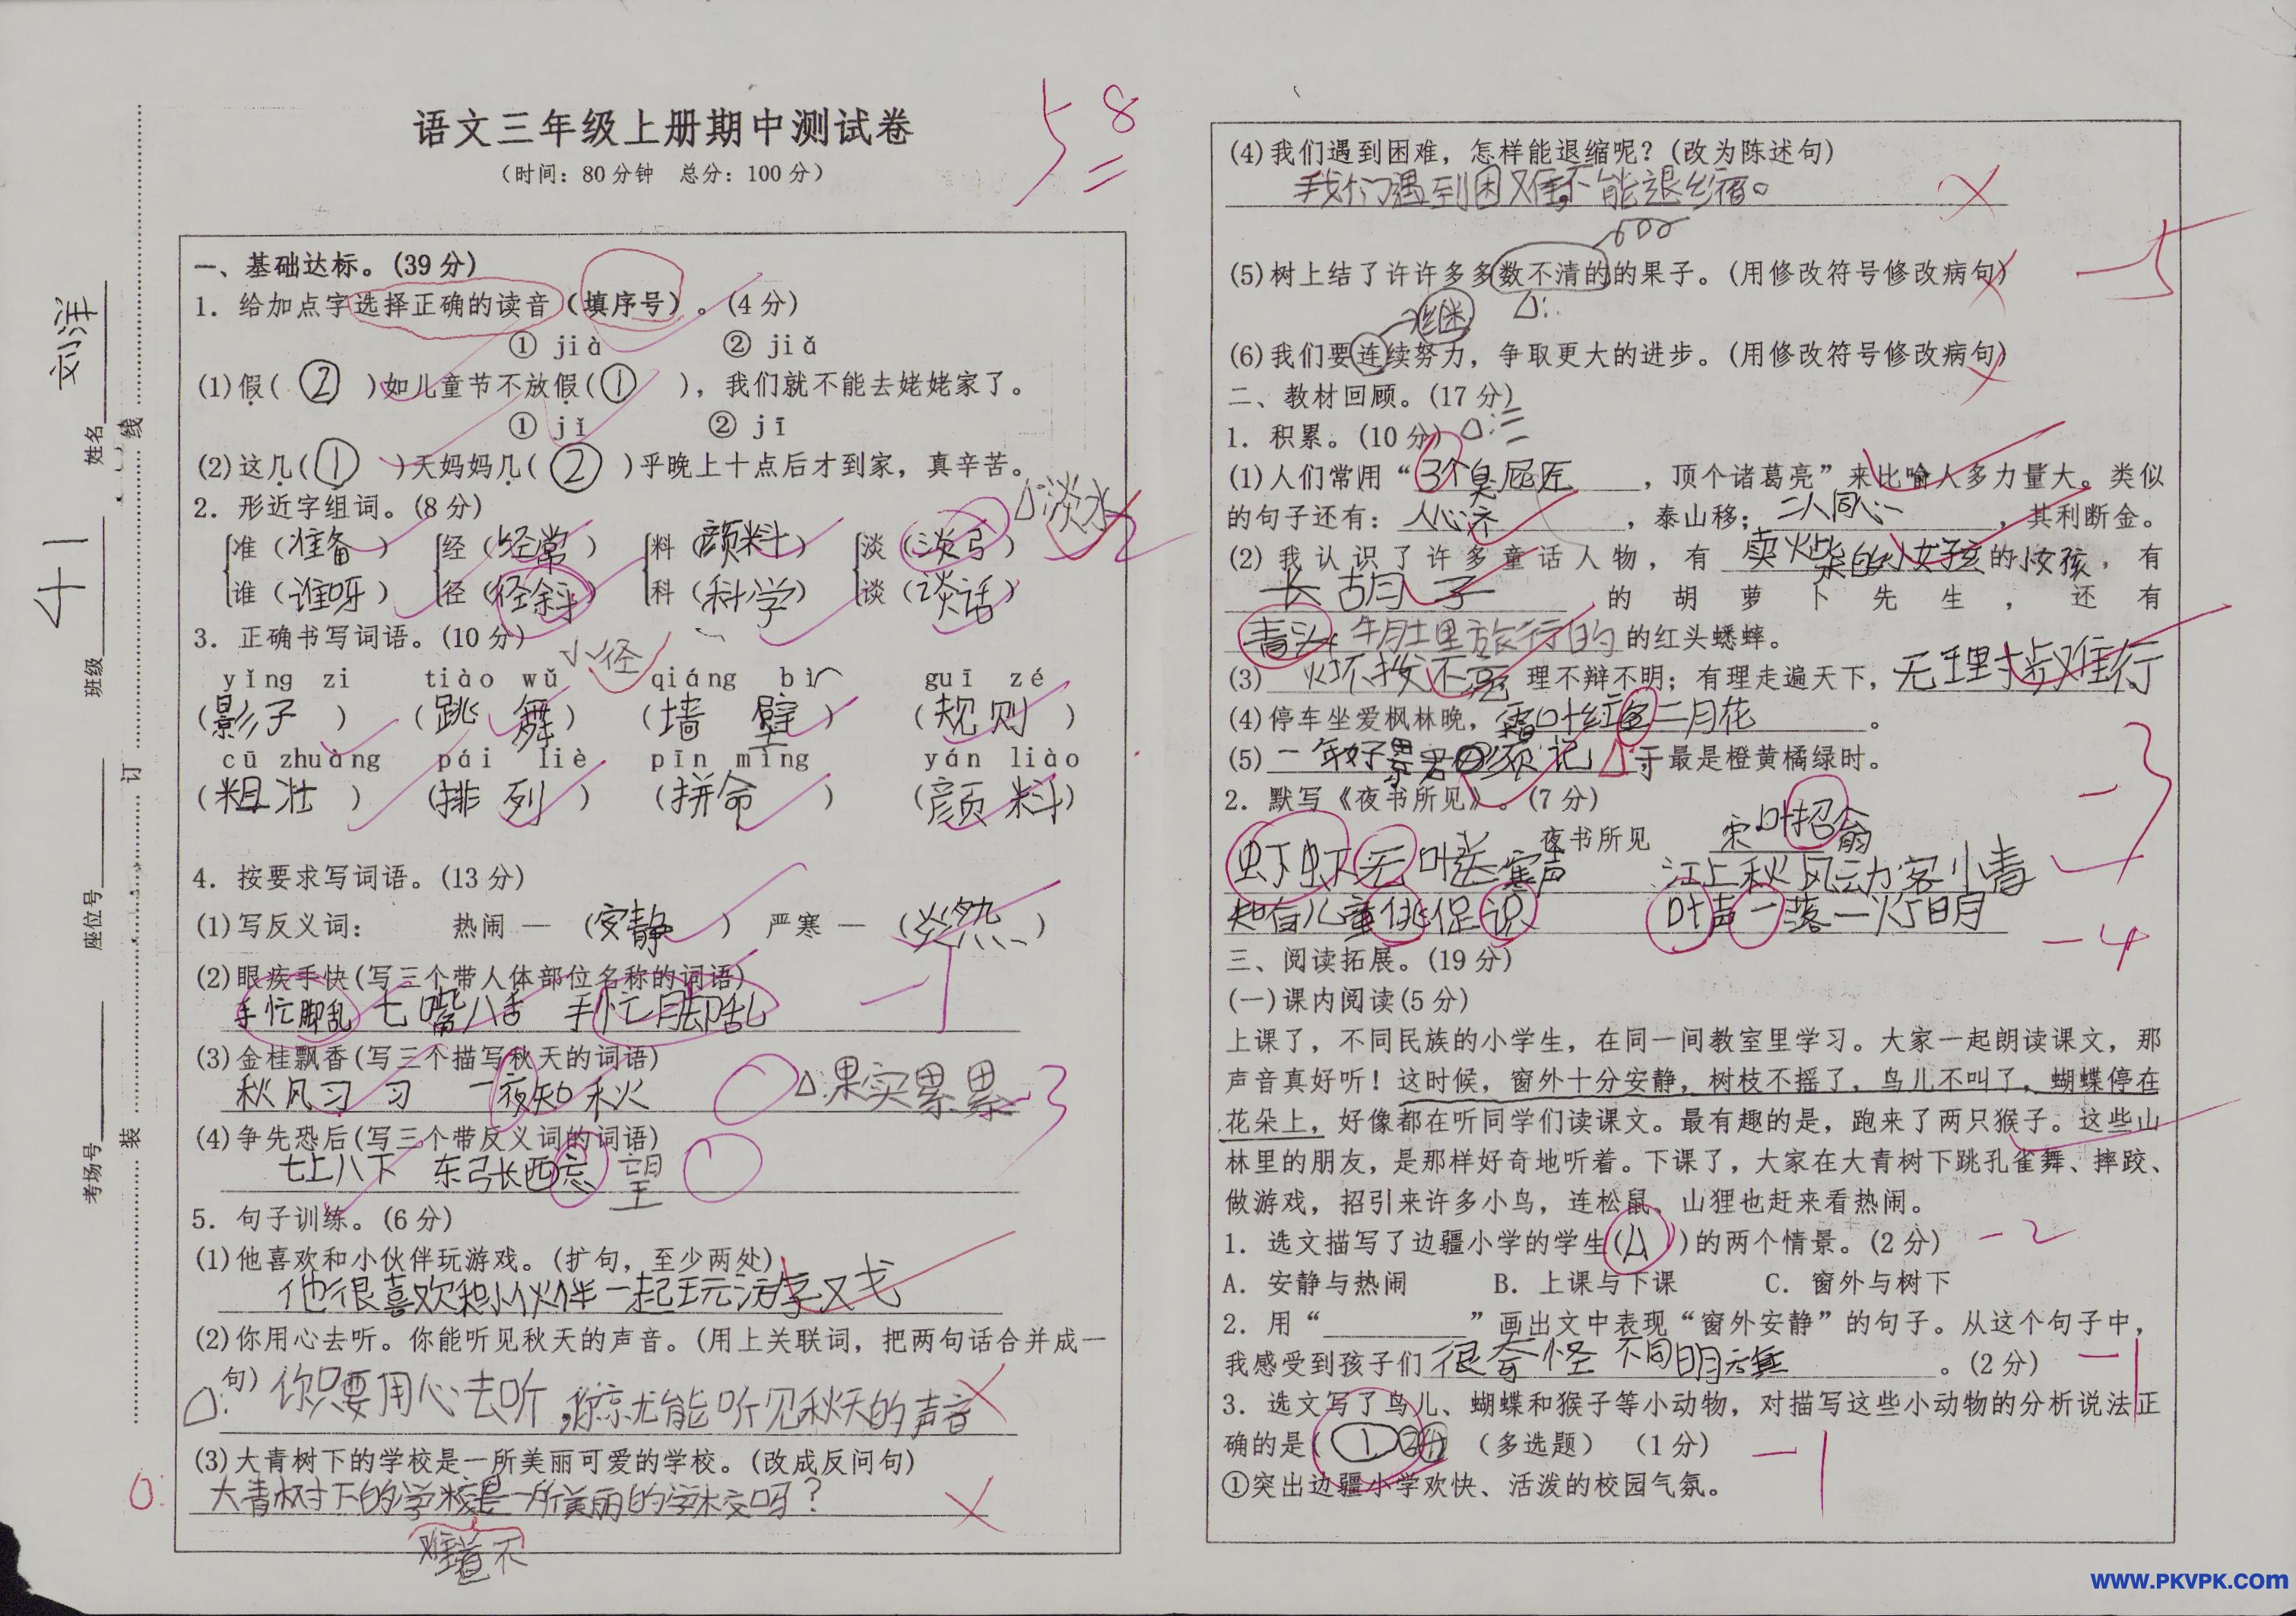 语文三年级上册期中测试卷
（时间：80分钟 总分：100分）
58
姓名 刘洋
班级
座位号
考场号
装 订 线
一、基础达标。(39分)
1. 给加点字选择正确的读音（填序号）。(4分)
① jià ② jiǎ
(1)假( ② )如儿童节不放假( ① )，我们就不能去姥姥家了。
① jǐ ② jī
(2)这几( ① )天妈妈几( ② )乎晚上十点后才到家，真辛苦。
2. 形近字组词。(8分)
淡水 -2
准（准备） 经（经常） 料（颜料） 淡（淡弓）
谁（谁呀） 径（径斜） 科（科学） 谈（谈话）
3. 正确书写词语。(10分)
小径
yǐng zi tiào wǔ qiáng bì guī zé
(影子) (跳舞) (墙壁) (规则)
cū zhuàng pái liè pīn mìng yán liào
(粗壮) (排列) (拼命) (颜料)
4. 按要求写词语。(13分)
(1)写反义词： 热闹 — (安静) 严寒 — (炎热)
(2)眼疾手快(写三个带人体部位名称的词语)
手忙脚乱 七嘴八舌 手忙脚乱 -1
(3)金桂飘香(写三个描写秋天的词语)
秋风习习 一夜知秋 果实累累 -3
(4)争先恐后(写三个带反义词的词语)
七上八下 东张西忘 望
5. 句子训练。(6分)
(1)他喜欢和小伙伴玩游戏。(扩句，至少两处)
他很喜欢和小伙伴一起玩游戏
(2)你用心去听。你能听见秋天的声音。(用上关联词，把两句话合并成一
句) 你只要用心去听，你就能听见秋天的声音
(3)大青树下的学校是一所美丽可爱的学校。(改成反问句)
大青树下的学校是一所美丽的学校吗？
难道不
(4)我们遇到困难，怎样能退缩呢？(改为陈述句)
我们遇到困难不能退缩。
(5)树上结了许许多多数不清的的果子。(用修改符号修改病句)
-5
继
(6)我们要连续努力，争取更大的进步。(用修改符号修改病句)
二、教材回顾。(17分)
1. 积累。(10分)
(1)人们常用“3个臭屁匠，顶个诸葛亮”来比喻人多力量大。类似
的句子还有：人心齐，泰山移；二人同心，其利断金。
(2)我认识了许多童话人物，有卖火柴的小女孩的小女孩，有
长胡子的胡萝卜先生，还有
青头牛肚里旅行的的红头蟋蟀。
(3)火不拨不亮 理不辩不明；有理走遍天下，无理寸步难行
(4)停车坐爱枫林晚，霜叶红鱼二月花。
(5)一年好景君须记 于最是橙黄橘绿时。
-3
2. 默写《夜书所见》。(7分)
夜书所见 宋 叶招翁
虾虾无叶送寒声 江上秋风动客小青
知有儿童佻促识 叶声一落一灯明
-4
三、阅读拓展。(19分)
(一)课内阅读(5分)
上课了，不同民族的小学生，在同一间教室里学习。大家一起朗读课文，那
声音真好听！这时候，窗外十分安静，树枝不摇了，鸟儿不叫了，蝴蝶停在
花朵上，好像都在听同学们读课文。最有趣的是，跑来了两只猴子。这些山
林里的朋友，是那样好奇地听着。下课了，大家在大青树下跳孔雀舞、摔跤、
做游戏，招引来许多小鸟，连松鼠、山狸也赶来看热闹。
1. 选文描写了边疆小学的学生(A)的两个情景。(2分) -2
A. 安静与热闹 B. 上课与下课 C. 窗外与树下
2. 用“”画出文中表现“窗外安静”的句子。从这个句子中，
我感受到孩子们很奇怪 不同。(2分) -1
3. 选文写了鸟儿、蝴蝶和猴子等小动物，对描写这些小动物的分析说法正
确的是(①②④ （多选题）（1分） -1
①突出边疆小学欢快、活泼的校园气氛。
www.PKVPK.com